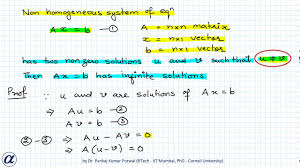 Non homogeneous system of eqⁿ
Ax = b —①
A = n×n matrix
x = n×1 vector
b = n×1 vector
has two non zero solutions u and v such that u ≠ v
Then Ax = b has infinite solutions.
Proof :- ∵ u and v are solutions of Ax = b
⇒ Au = b —②
Av = b —③
②-③ ⇒ Au - Av = 0
⇒ A(u-v) = 0
by Dr. Pankaj Kumar Porwal (BTech - IIT Mumbai, PhD - Cornell University)